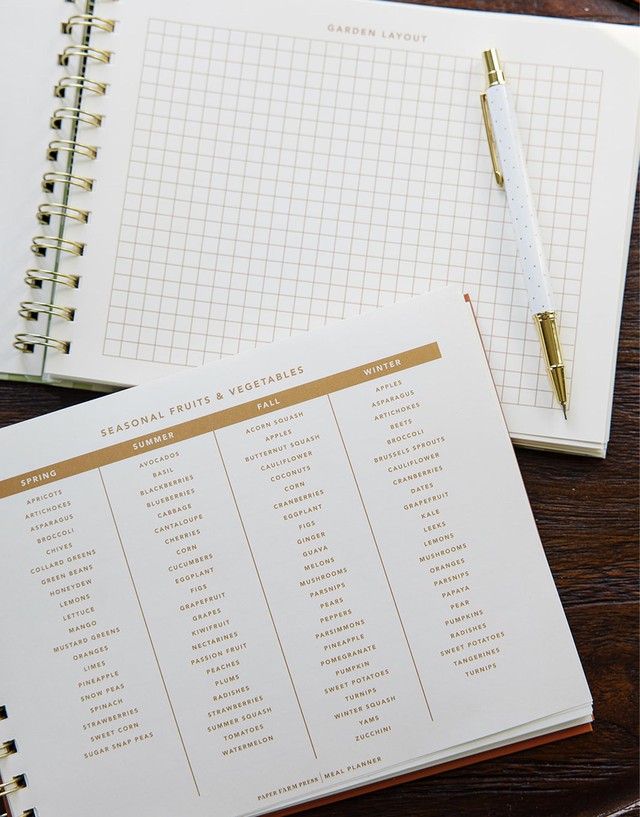 GARDEN LAYOUT
SEASONAL FRUITS & VEGETABLES
SPRING
APRICOTS
ARTICHOKES
ASPARAGUS
BROCCOLI
CHIVES
COLLARD GREENS
GREEN BEANS
HONEYDEW
LEMONS
LETTUCE
MANGO
MUSTARD GREENS
ORANGES
LIMES
PINEAPPLE
SNOW PEAS
SPINACH
STRAWBERRIES
SWEET CORN
SUGAR SNAP PEAS
SUMMER
AVOCADOS
BASIL
BLACKBERRIES
BLUEBERRIES
CABBAGE
CANTALOUPE
CHERRIES
CORN
CUCUMBERS
EGGPLANT
FIGS
GRAPEFRUIT
GRAPES
KIWIFRUIT
NECTARINES
PASSION FRUIT
PEACHES
PLUMS
RADISHES
STRAWBERRIES
SUMMER SQUASH
TOMATOES
WATERMELON
FALL
ACORN SQUASH
APPLES
BUTTERNUT SQUASH
CAULIFLOWER
COCONUTS
CORN
CRANBERRIES
EGGPLANT
FIGS
GINGER
GUAVA
MELONS
MUSHROOMS
PARSNIPS
PEARS
PEPPERS
PARSIMMONS
PINEAPPLE
POMEGRANATE
PUMPKIN
SWEET POTATOES
TURNIPS
WINTER SQUASH
YAMS
ZUCCHINI
WINTER
APPLES
ASPARAGUS
ARTICHOKES
BEETS
BROCCOLI
BRUSSELS SPROUTS
CAULIFLOWER
CRANBERRIES
DATES
GRAPEFRUIT
KALE
LEEKS
LEMONS
MUSHROOMS
ORANGES
PARSNIPS
PAPAYA
PEAR
PUMPKINS
RADISHES
SWEET POTATOES
TANGERINES
TURNIPS
PAPER FARM PRESS | MEAL PLANNER